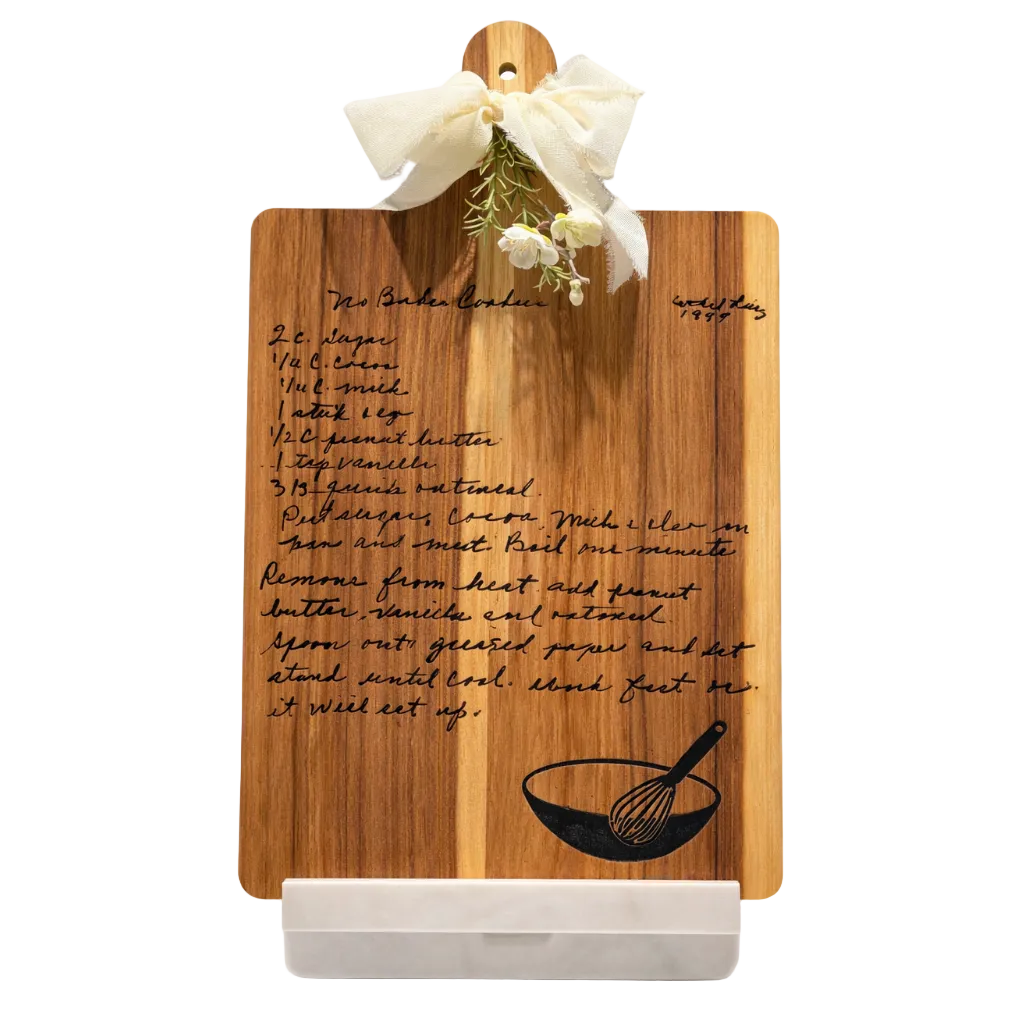 No Bake Cookies
1999
2 c. Sugar
1/4 C. Cocoa
1/4 C. milk
1 stick
1/2 C peanut butter
1 tsp vanilla
3 quick oatmeal.
Put sugar, Cocoa, Milk & in
pan and melt. Boil one minute
Remove from heat add peanut
butter, vanilla and oatmeal.
Spoon out greased paper and let
stand until cool. Work fast or
it will set up.